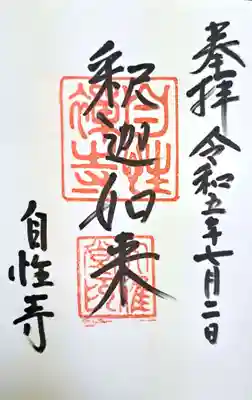 奉拝 令和五年七月二日
釈迦如来
自性寺